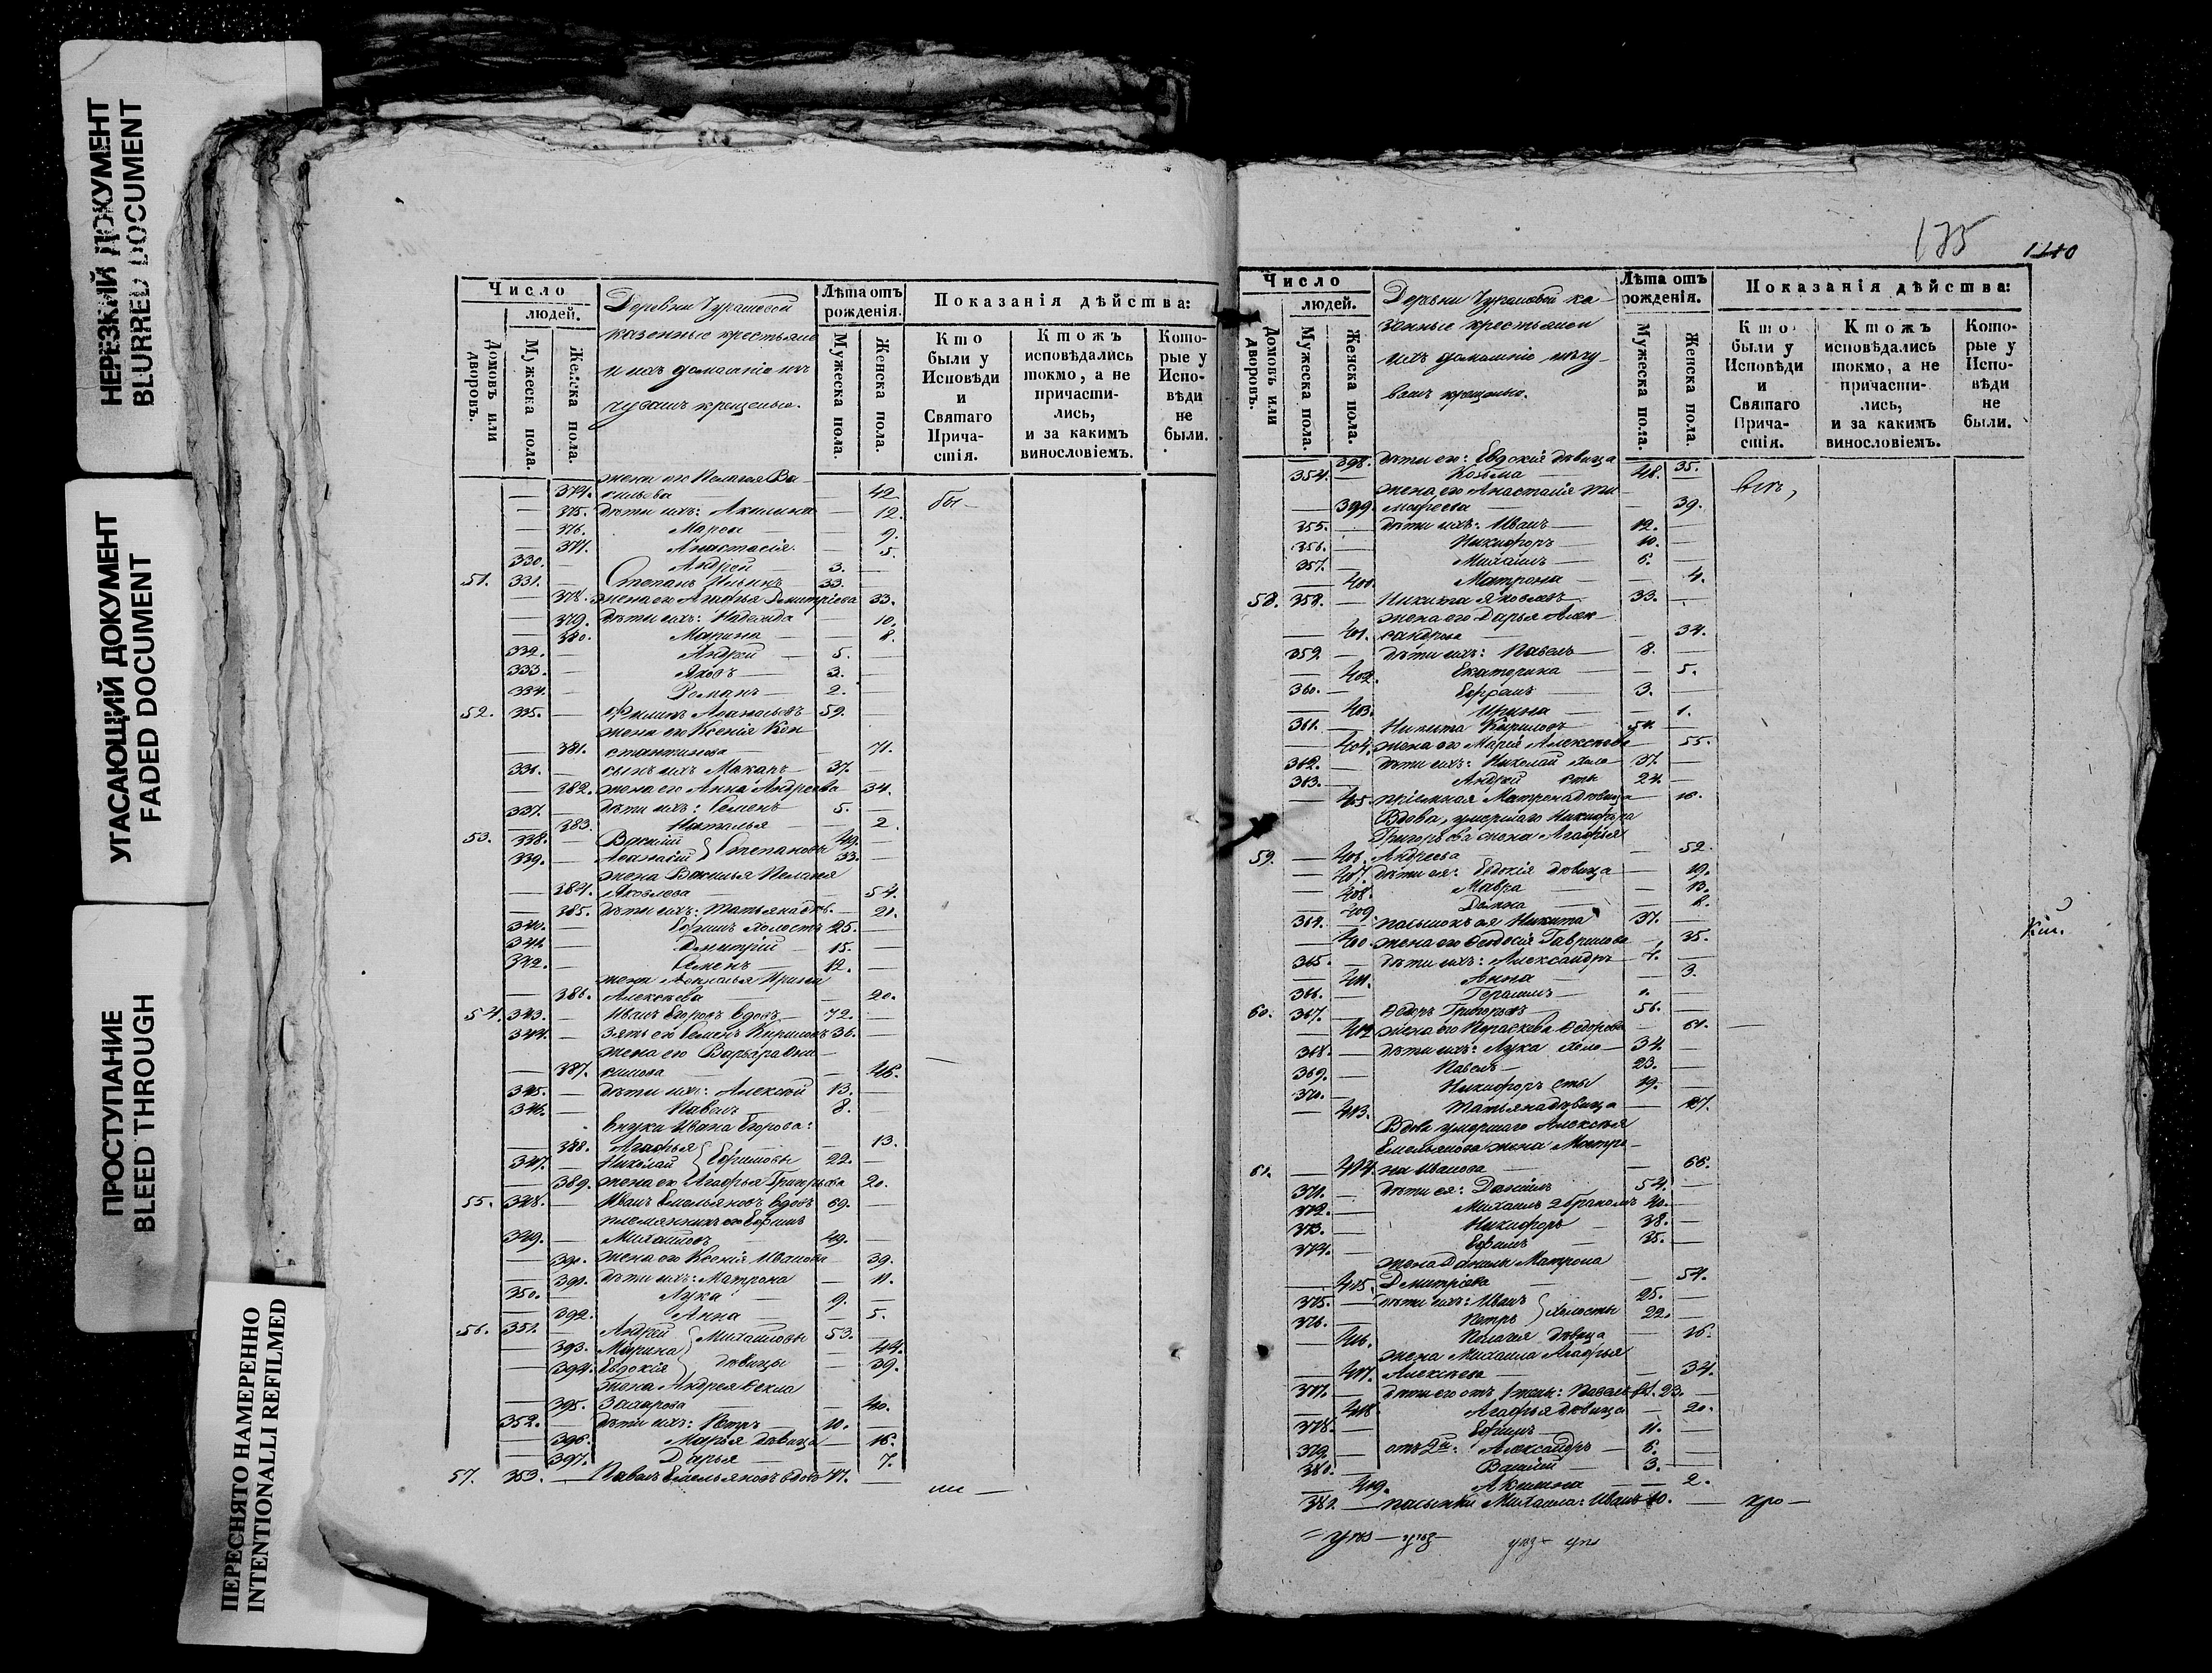 НЕРЕЗКИЙ ДОКУМЕНТ
BLURRED DOCUMENT
УГАСАЮЩИЙ ДОКУМЕНТ
FADED DOCUMENT
ПРОСТУПАНИЕ
BLEED THROUGH
ПЕРЕСНЯТО НАМЕРЕННО
INTENTIONALLI REFILMED
Число
людей.
Домовъ или дворовъ.
Мужеска пола.
Женска пола.
Деревни Чурашевой
казенные крестьяне
и ихъ домашніе изъ
чувашъ крещеные.
Лѣта отъ рожденія.
Мужеска пола.
Женска пола.
Показанія дѣйства:
Кто были у Исповѣди и Святаго Прича-стія.
Ктожъ исповѣдались токмо, а не причасти-лись, и за какимъ винословіемъ.
Кото-рые у Испо-вѣди не были.
— 374. жена его Пелагея Ва-
сильева — 42 бы-
— 375. дѣти ихъ: Акилина — 12.
— 376. Марѳа — 9.
— 377. Анастасія — 5.
330. — Андрей 3. —
51. 331. — Степанъ Ильинъ 33. —
— 378. жена его Агафья Дмитріева 33.
— 379. дѣти ихъ: Надежда — 10.
— 380. Марина — 8.
332. — Андрей — 5. —
333. — Яковъ — 3. —
334. — Романъ — 2. —
52. 335. — Филипъ Аѳанасьевъ 59. —
жена его Ксенія Кон
— 381. стантинова — 71.
336. — сынъ ихъ Макаръ 37. —
— 382. жена его Анна Андреева 34.
337. — дѣти ихъ: Семенъ 5. —
— 383. Наталья — 2.
53. 338. — Василій 49. —
339. — Аѳанасій } Степановы 33. —
жена Василья Пелагея
— 384. Яковлева — 54.
— 385. дѣти ихъ: Татьяна дѣв. — 21.
340. — Ефимъ холостъ 25. —
341. — Дмитрій — 15. —
342. — Семенъ — 12. —
жена Аѳанасья Ирина
— 386. Алексѣева — 20.
54. 343. — Иванъ Егоровъ вдовъ 72. —
344. — Зять его Семенъ Кириловъ 36. —
жена его Варвара
— 387. — 46.
345. — дѣти ихъ: Алексѣй 13. —
346. — Павелъ — 8. —
внуки Ивана Егорова:
— 388. Агафья — 13.
347. — Николай } Ефимовы 22. —
— 389. жена его Агафья Григорьева 20.
55. 348. — Иванъ Емельяновъ вдовъ 69. —
племянникъ его Ефимъ
349. — Михайловъ 49. —
— 390. жена его Ксенія Иванова 39.
— 391. дѣти ихъ: Матрона — 11.
350. — Лука — 9. —
— 392. Анна — 5.
56. 351. — Андрей } Михайловы 53. —
— 393. Марина — 44.
— 394. Евдокія } дѣвицы — 39.
жена Андрея Ѳекла
— 395. Захарова — 40.
352. — дѣти ихъ: Петръ — 10. —
— 396. Марья дѣвица — 16.
— 397. Дарья — 7.
57. 353. — Павелъ Емельяновъ вдовъ 77. —
ли —
175
1710
Число
людей.
Домовъ или дворовъ.
Мужеска пола.
Женска пола.
Деревни Чурашевой ка-
зенные крестьяне и
ихъ домашніе изъ чу-
вашъ крещеные.
Лѣта отъ рожденія.
Мужеска пола.
Женска пола.
Показанія дѣйства:
Кто были у Исповѣди и Святаго Прича-стія.
Ктожъ исповѣдались токмо, а не причасти-лись, и за какимъ винословіемъ.
Кото-рые у Испо-вѣди не были.
— 398. дѣти его: Евдокія дѣвица — 35.
354. — Козьма — 48. —
жена его Анастасія Ти-
— 399. мофеева — 39.
355. — дѣти ихъ: Иванъ — 12. —
356. — Никифоръ — 10. —
357. — Михаилъ — 6. —
— 400. Матрона — 4.
58. 358. — Никита Яковлевъ 33. —
жена его Дарья Алек-
— 401. сандрова — 34.
359. — дѣти ихъ: Павелъ — 8. —
— 402. Екатерина — 5.
360. — Ефремъ — 3. —
— 403. Ирина — 1.
361. — Никита Кириловъ 54. —
— 404. жена его Марія Алексѣева 55.
362. — дѣти ихъ: Николай холо 37. —
363. — Андрей сты 24. —
— 405. пріемная Матрона дѣвица 16.
Вдова, умершаго Никифора
Григорьева жена Агафья
59. — 406. Андреева — 52.
— 407. дѣти ея: Евдокія дѣвица — 19.
— 408. Мавра — 13.
— 409. Домна — 8.
364. — пасынокъ ея Никита 37. —
— 410. жена его Ѳеодосія Гаврилова 35.
365. — дѣти ихъ: Александръ 4. —
— 411. Анна — 3.
366. — Герасимъ —
60. 367. — Ѳедоръ Григорьевъ 56. —
— 412. жена его Параскева Ѳедорова 61.
368. — дѣти ихъ: Лука холо- 34. —
369. — Павелъ — 23. —
370. — Никифоръ сты 19. —
— 413. Татьяна дѣвица — 27.
Вдова умершаго Алексѣя
Емельянова жена Матро-
61. — 414. на Иванова — 66.
371. — дѣти ея: Даніилъ 54. —
372. — Михаилъ 2 бракомъ 40. —
373. — Никифоръ — 38. —
374. — Ефимъ — 35. —
жена Данилы Матрона
— 415. Дмитріева — 54.
375. — дѣти ихъ: Иванъ 25. —
376. — Петръ } холосты 22. —
— 416. Пелагея дѣвица — 16.
жена Михаила Агафья
— 417. Алексѣева — 34.
377. — дѣти его отъ 1 жены: Павелъ 23. —
— 418. Агафья дѣвица — 20.
378. — Ефимъ — 11. —
379. — отъ 2й: Александръ — 6. —
380. — Василій — 3. —
— 419. Акилина — 2.
381. — пасынки Михаила: Иванъ 10. —